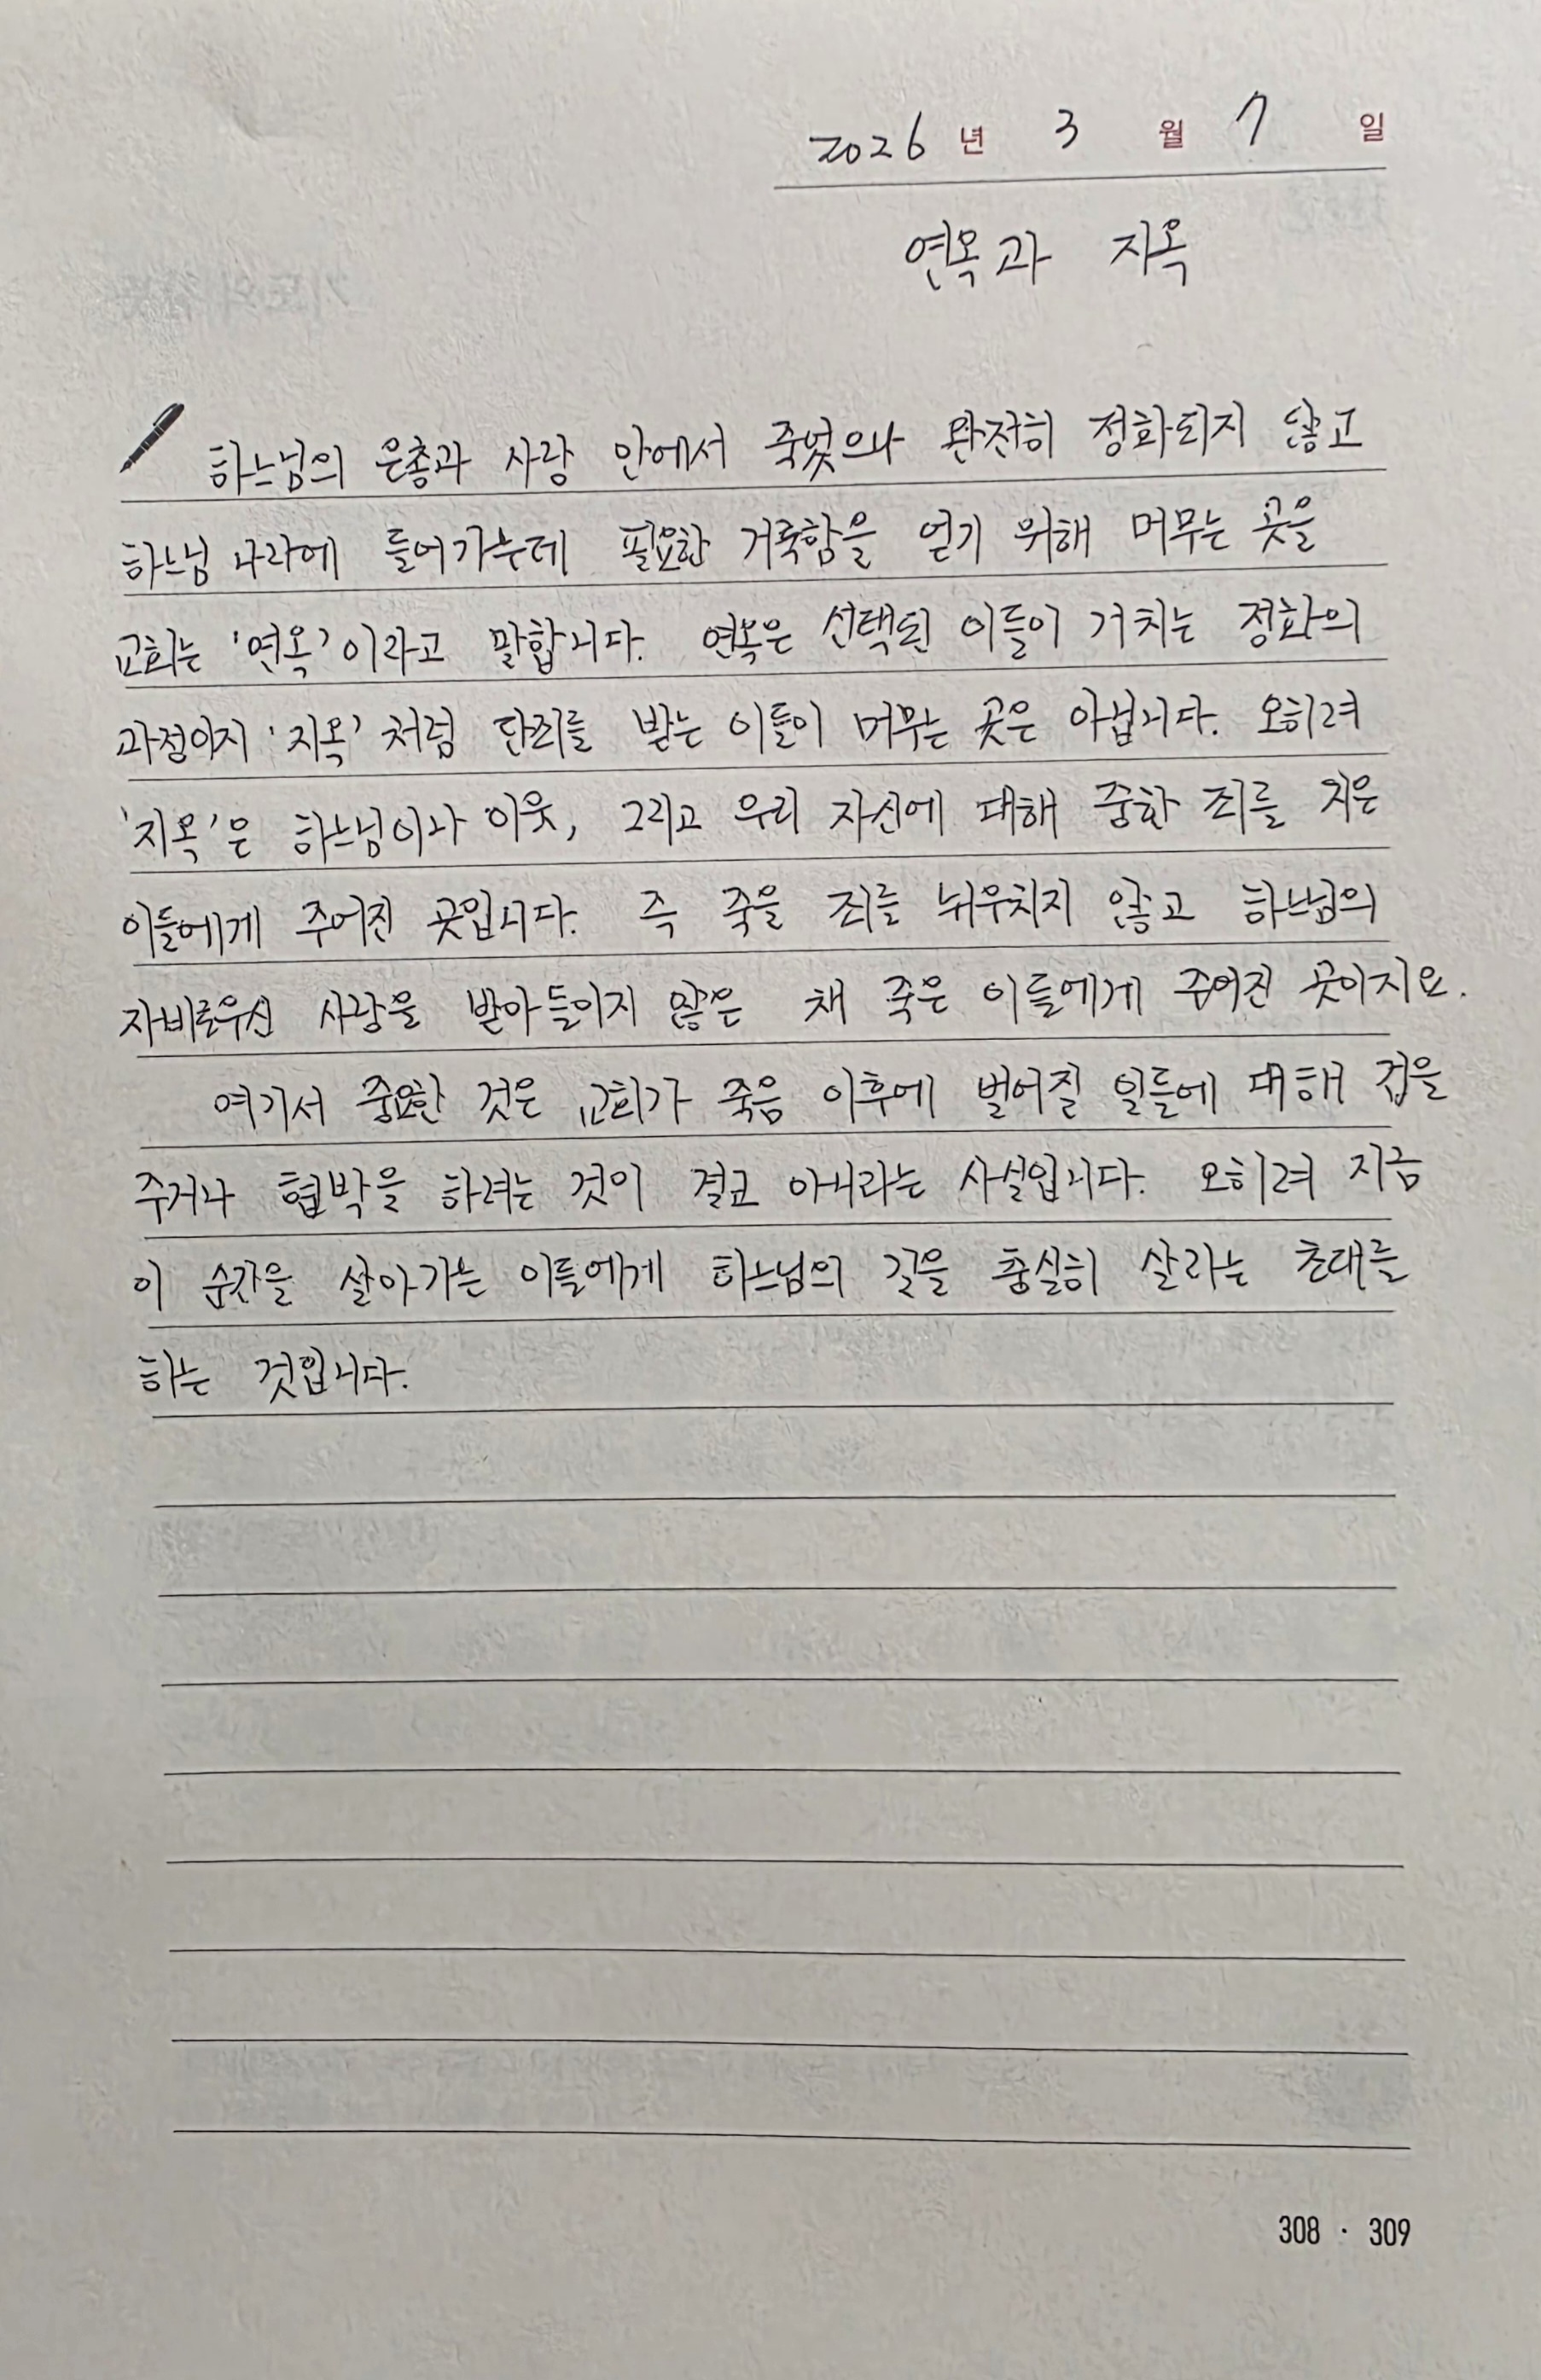 2026 년 3 월 7 일
연옥과 지옥
하느님의 은총과 사랑 안에서 죽었으나 완전히 정화되지 않고
하느님 나라에 들어가는데 필요한 거룩함을 얻기 위해 머무는 곳을
교회는 '연옥'이라고 말합니다. 연옥은 선택된 이들이 거치는 정화의
과정이지 '지옥'처럼 단죄를 받는 이들이 머무는 곳은 아닙니다. 오히려
'지옥'은 하느님이나 이웃, 그리고 우리 자신에 대해 중한 죄를 지은
이들에게 주어진 곳입니다. 즉 죽을 죄를 뉘우치지 않고 하느님의
자비로우신 사랑을 받아들이지 않은 채 죽은 이들에게 주어진 곳이지요.
여기서 중요한 것은 교회가 죽음 이후에 벌어질 일들에 대해 겁을
주거나 협박을 하려는 것이 결코 아니라는 사실입니다. 오히려 지금
이 순간을 살아가는 이들에게 하느님의 길을 충실히 살라는 초대를
하는 것입니다.
308 · 309